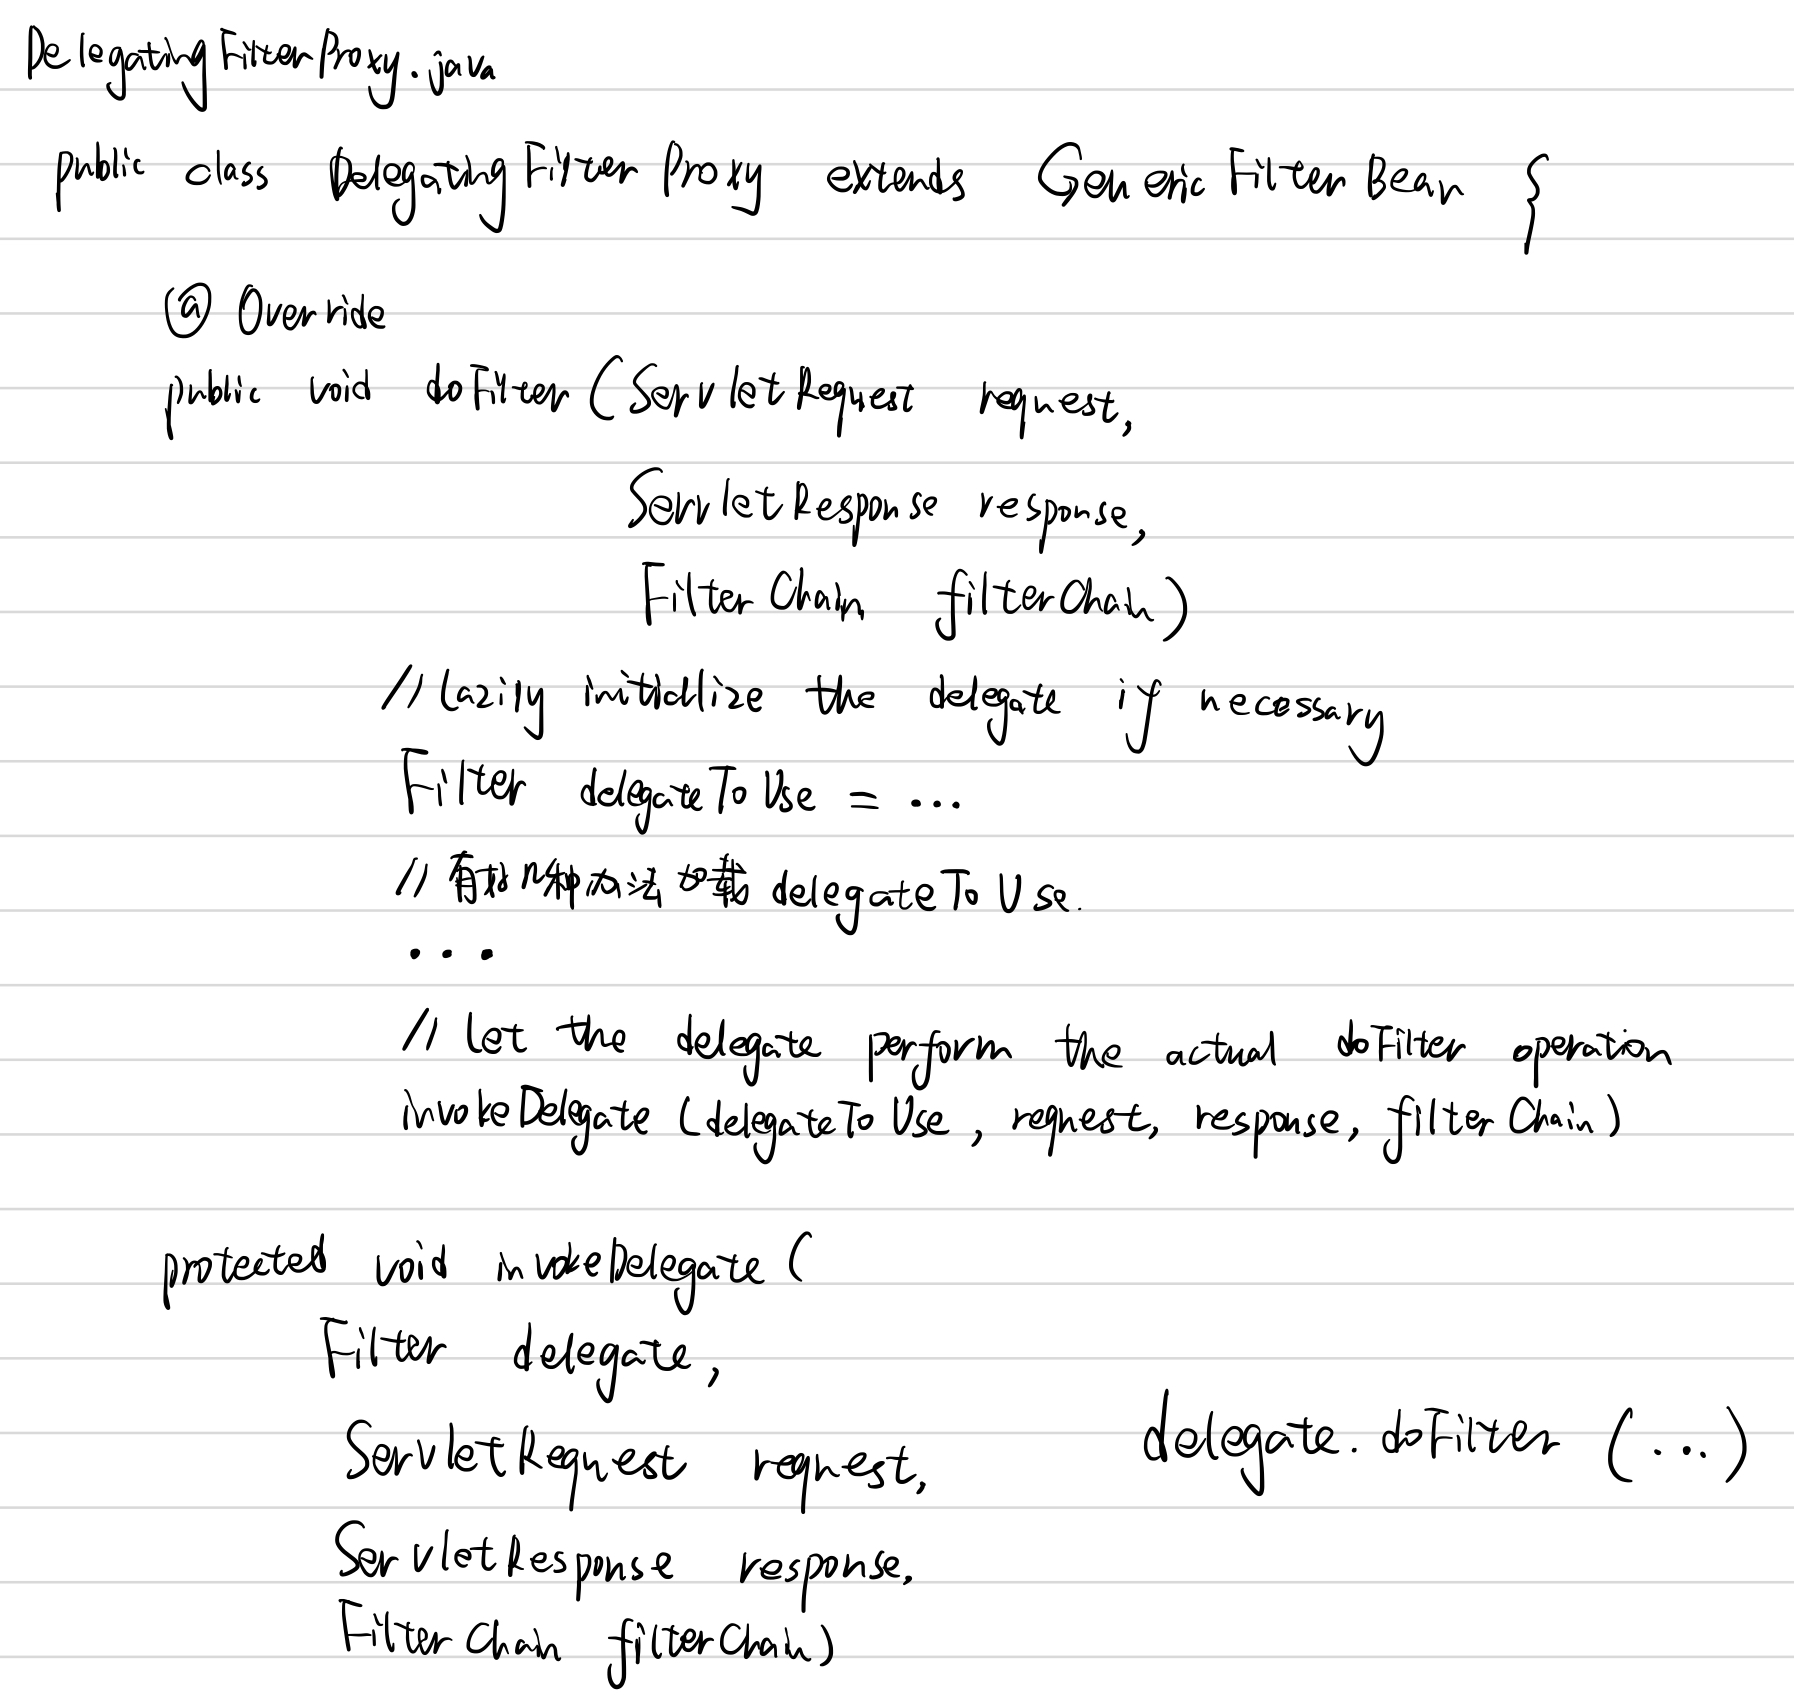 DelegatingFilterProxy.java
public class DelegatingFilterProxy extends GenericFilterBean {
@Override
public void doFilter(ServletRequest request,
ServletResponse response,
FilterChain filterChain)
// Lazily initialize the delegate if necessary
Filter delegateToUse = ...
// 有好几种办法加载 delegateToUse.
...
// Let the delegate perform the actual doFilter operation
invokeDelegate (delegateToUse, request, response, filterChain)
protected void invokeDelegate (
Filter delegate,
ServletRequest request,
delegate.doFilter (...)
ServletResponse response,
FilterChain filterChain)